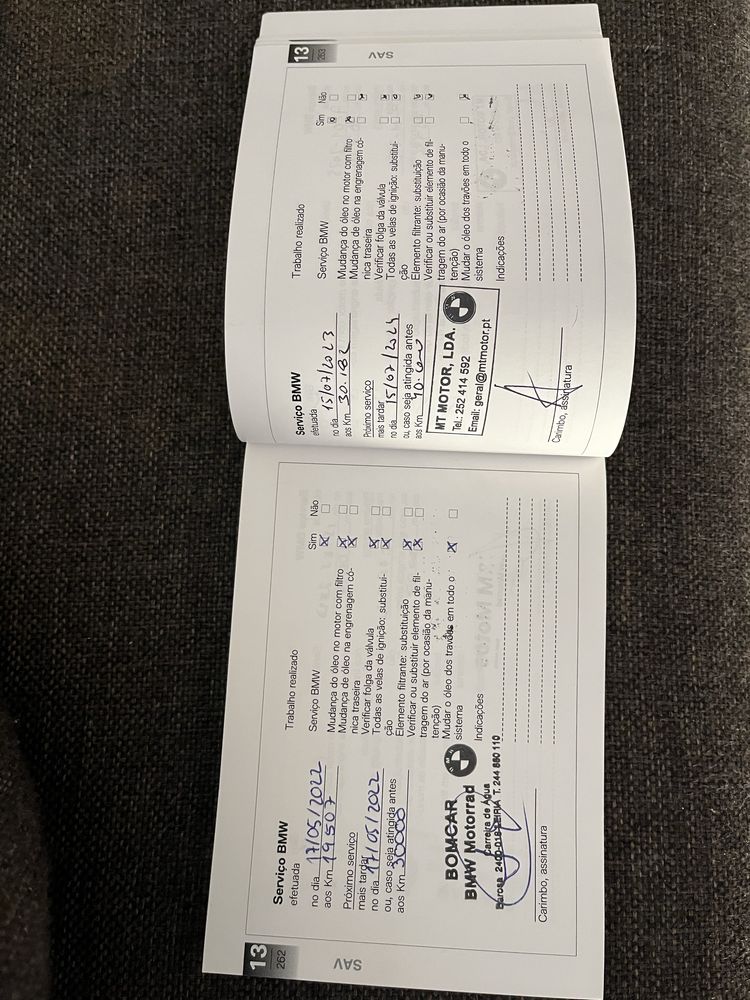 13
262
SAV
Serviço BMW
efetuada
no dia 17/05/2022
aos Km 19507
Próximo serviço
mais tardar
no dia 17/05/2022
ou, caso seja atingida antes
aos Km 30000
BOMCAR
BMW Motorrad
Carreira de Água
Barosa 2400-016 LEIRIA T. 244 880 110
Carimbo, assinatura
Trabalho realizado
Sim Não
Serviço BMW
Mudança do óleo no motor com filtro
Mudança de óleo na engrenagem có-
nica traseira
Verificar folga da válvula
Todas as velas de ignição: substitui-
ção
Elemento filtrante: substituição
Verificar ou substituir elemento de fil-
tragem do ar (por ocasião da manu-
tenção)
Mudar o óleo dos travões em todo o
sistema
Indicações
13
263
SAV
Serviço BMW
efetuada
no dia 15/07/2023
aos Km 30.182
Próximo serviço
mais tardar
no dia 15/07/2024
ou, caso seja atingida antes
aos Km
MT MOTOR, LDA.
Tel.: 252 414 592
Email: geral@mtmotor.pt
Carimbo, assinatura
Trabalho realizado
Sim Não
Serviço BMW
Mudança do óleo no motor com filtro
Mudança de óleo na engrenagem có-
nica traseira
Verificar folga da válvula
Todas as velas de ignição: substitui-
ção
Elemento filtrante: substituição
Verificar ou substituir elemento de fil-
tragem do ar (por ocasião da manu-
tenção)
Mudar o óleo dos travões em todo o
sistema
Indicações